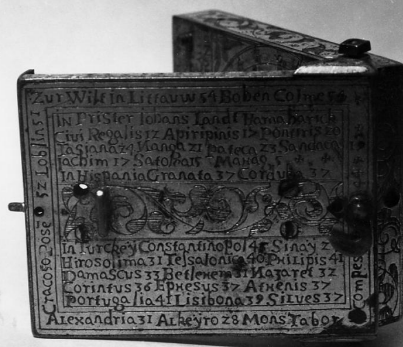 Zur Wilt In Littauw 54 Boben Colme 56
In Prister Iohans Landt Hamabarich
Civi Regalis 12 Apiripinis 12 20
Tasiana 24 Manga 21 23
Iachim 17 Mango 5
In Hispania Granata 37 Corduba 37
In Turckey Constantinopol 45 Sinay
Hirosolima 31 Telsalonica 40 Philipis 41
Damascus 33 Betlehem 31 Nazaret 32
Corintus 36 Ephesus 37 Athenis 37
Portugalia 41 Lisibona 39 Silves 37
Alexandria 31 Alkeyro 28 Mons Tabor
Cracofo 52 Loblin 51
Compes